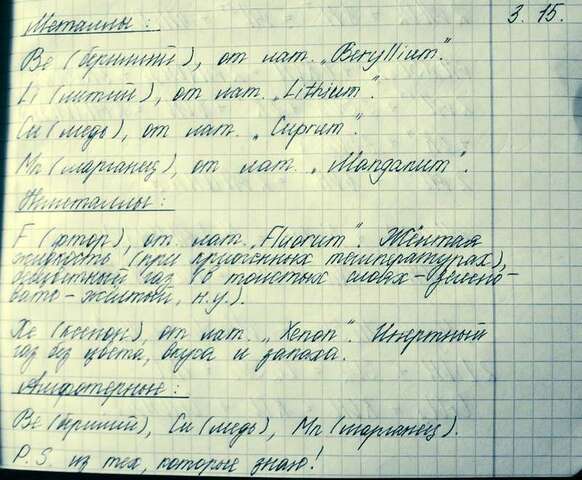 Металлы: 3.15.
Be (бериллий), от лат. „Beryllium".
Li (литий), от лат. „Lithium".
Cu (медь), от лат. „Cuprum".
Mn (марганец), от лат. „Manganum".
Неметаллы:
F (фтор), от лат. „Fluorum". Жёлтая
жидкость (при пониженных температурах),
бесцветный газ (в толстых слоях - зелено-
вато-жёлтый, н.у.).
Xe (ксенон), от лат. „Xenon". Инертный
газ без цвета, вкуса и запаха.
Амфотерные:
Be (бериллий), Cu (медь), Mn (марганец).
P.S. из тех, которые знаю!